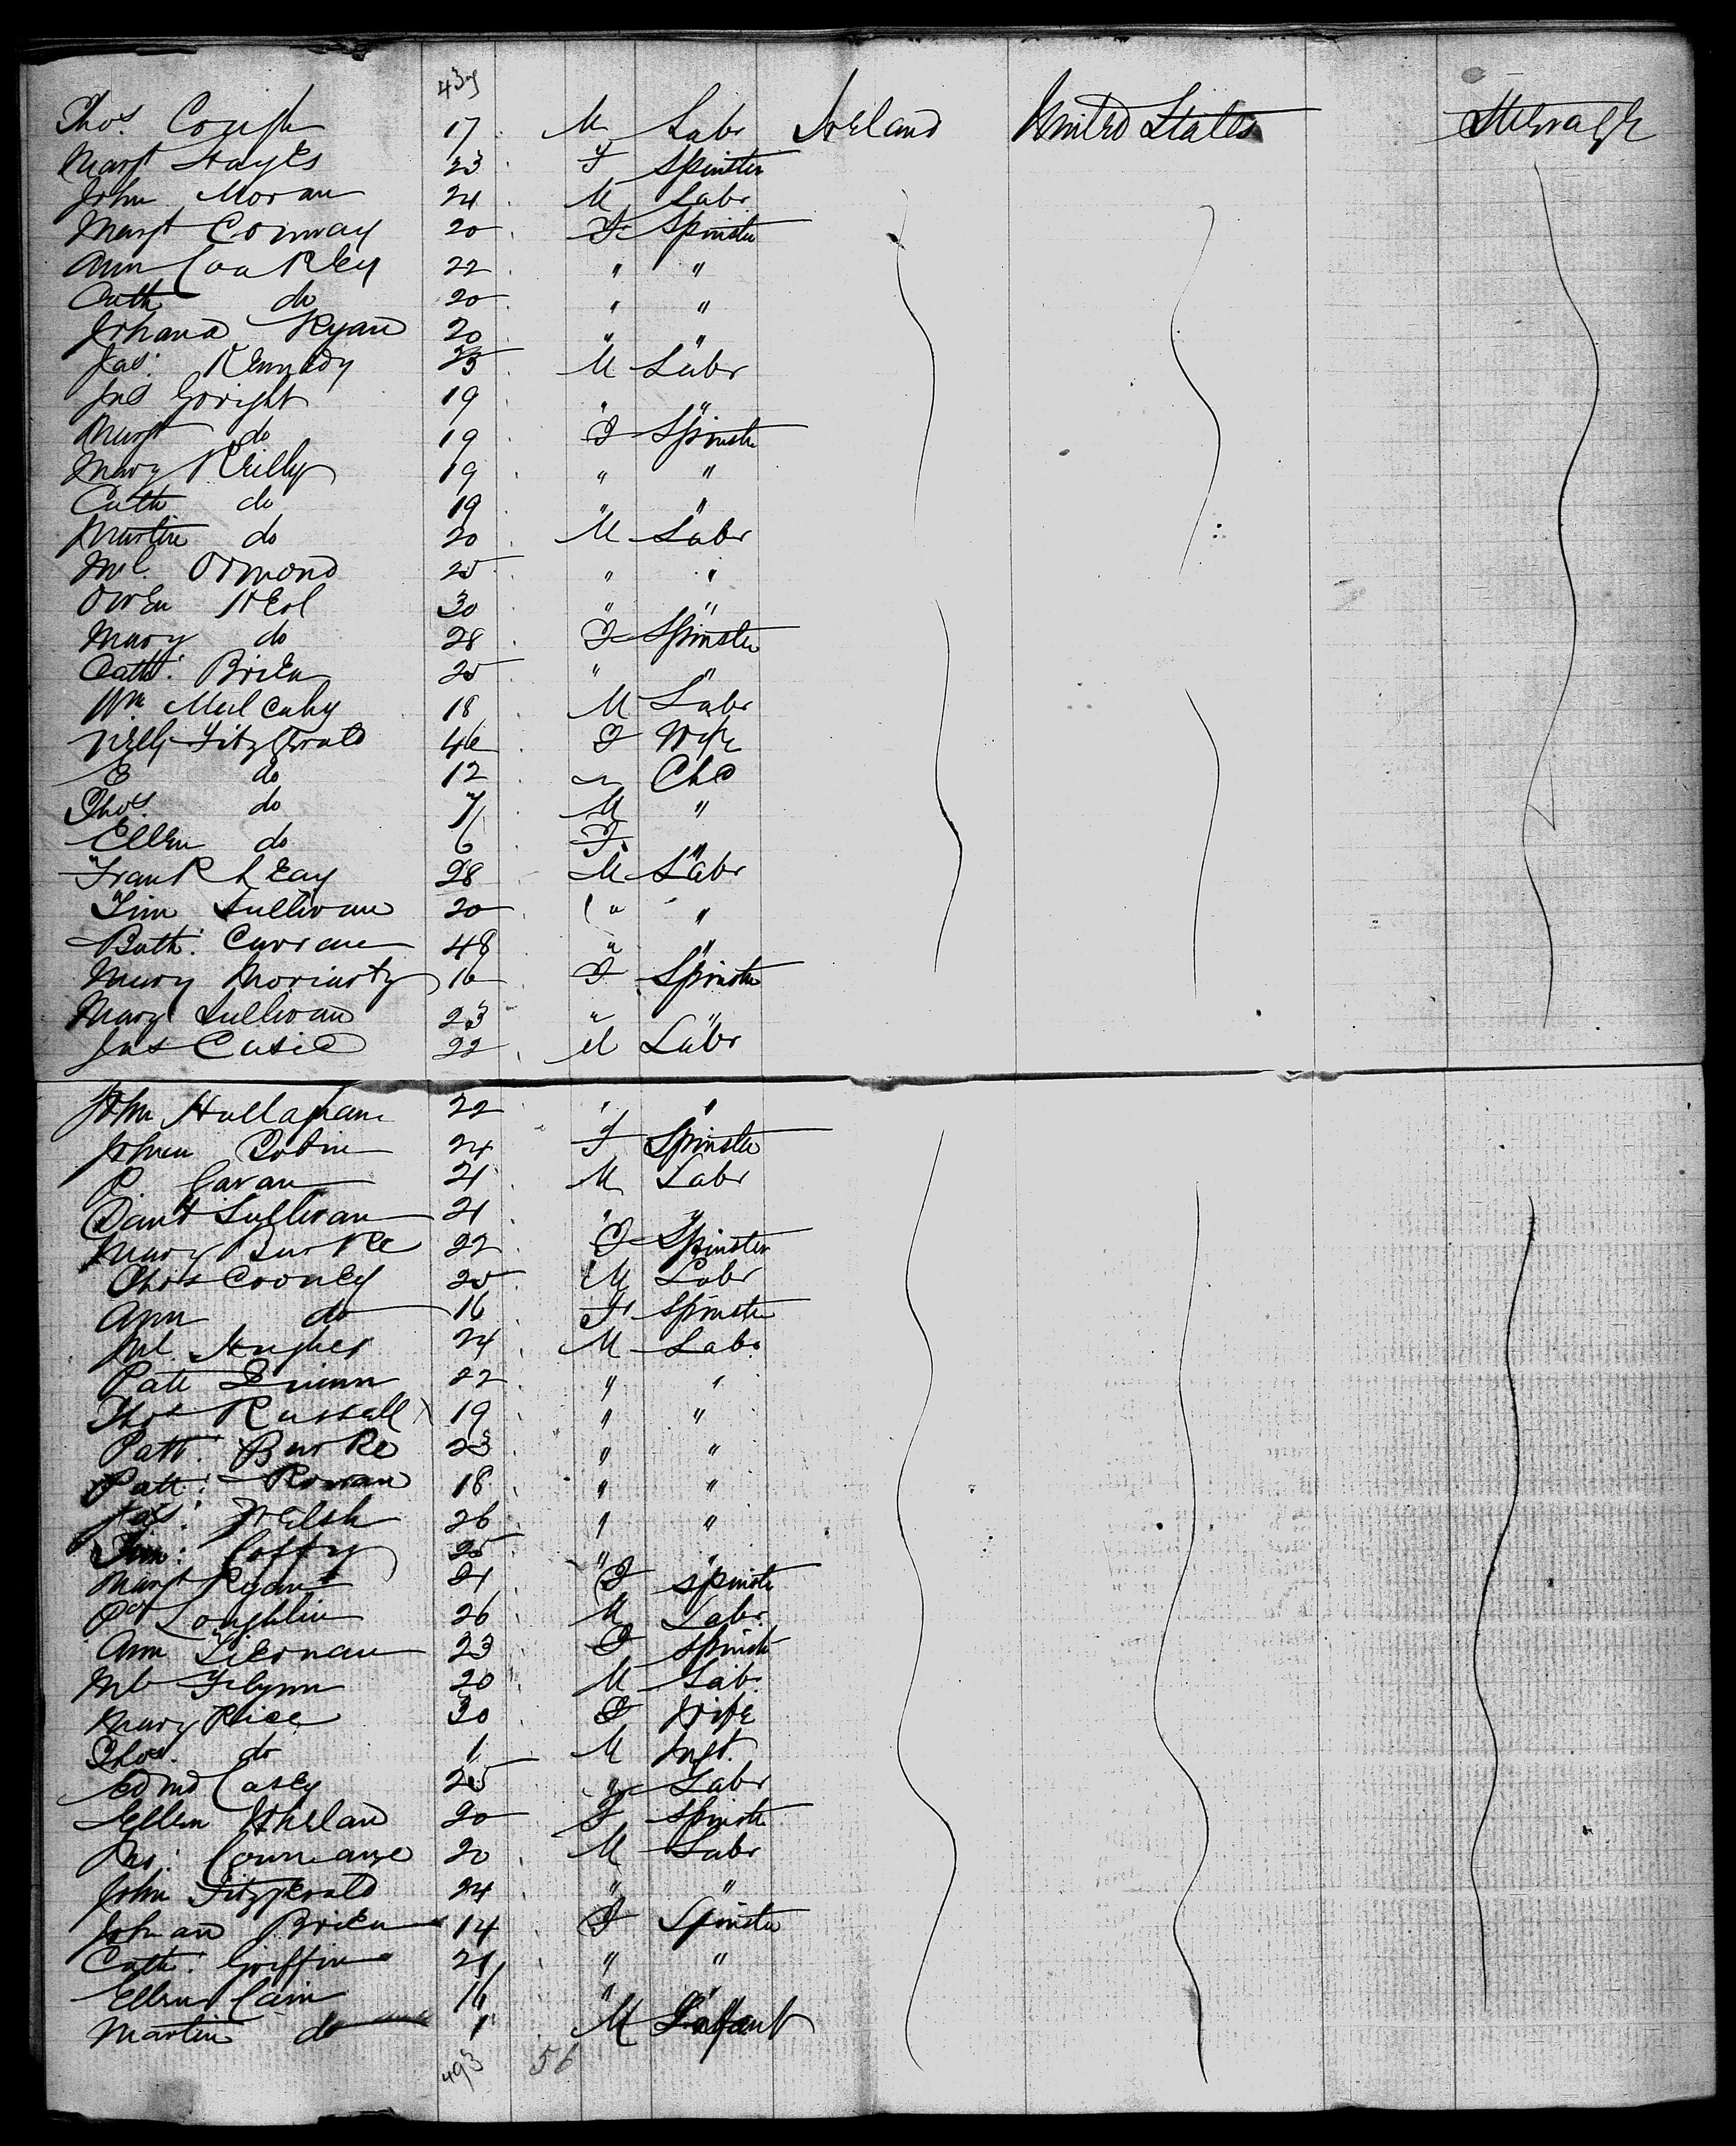 437
Thos. Cough 17 M Labr Ireland United States Steerage
Margt Hayes 23 F Spinster
John Moran 24 M Labr
Margt Conway 20 F Spinster
Ann Coakley 22 " "
Cath do 20 " "
Johana Ryan 20 " "
Jas. Kennedy 25 M Labr
Jno Goright 19 " "
Margt do 19 F Spinster
Mary Reilly 19 " "
Cath do 19 " "
Martin do 20 M Labr
Ml. Ormond 25 " "
Owen 30 " "
Mary do 28 F Spinster
Cath. Brien 25 " "
Wm Mulcahy 18 M Labr
Nelly Fitzgerald 40 F Wife
E do 12 " Chd
Thos. do 7 M "
Ellen do 6 F "
Frank Leay 28 M Labr
Tim Sullivan 20 " "
Bath. Curran 48 " "
Mary Moriarty 16 F Spinster
Mary Sullivan 23 " "
Jas Cusic 22 M Labr
John Hallaghan 22 " "
Johan Tobin 24 F Spinster
P. Cavan 21 M Labr
Danl Sullivan 21 " "
Mary Burke 22 F Spinster
Thos Cooney 25 M Labr
Ann do 16 F Spinster
Ml. Hughes 24 M Labr
Patt Quinn 22 " "
Thos Russell 19 " "
Patt. Burke 23 " "
Patt. Rowan 18 " "
Jas. Welsh 26 " "
Tim: Coffey 25 " "
Margt Ryan 21 F Spinster
Pat Loughlin 26 M Labr
Ann Tiernan 23 F Spinster
Ml Flynn 20 M Labr
Mary Rice 30 F Wife
Thos. do 1 M Inft.
Edmd Casey 25 " Labr
Ellen Whelan 20 F Spinster
Jas: 20 M Labr
John Fitzgerald 24 " "
Johana Brien 14 F Spinster
Cath. Griffin 21 " "
Ellen Cain 16 " "
Martin do 1 M Infant
493 56